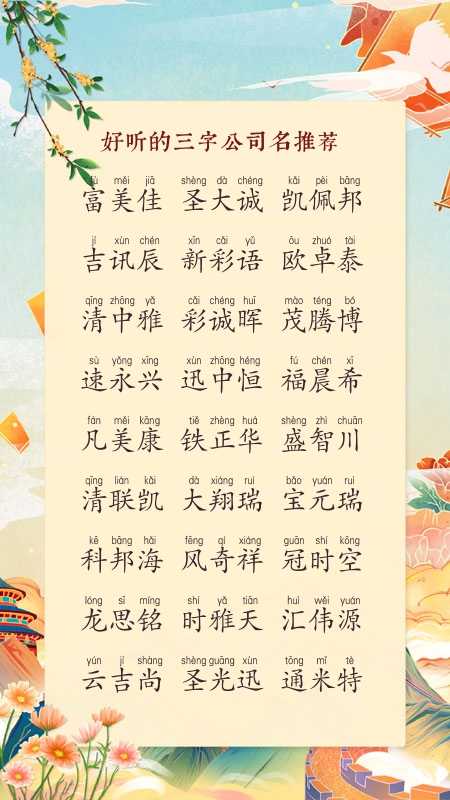 好听的三字公司名推荐
fù měi jiā shèng dà chéng kǎi pèi bāng
富美佳 圣大诚 凯佩邦
jí xùn chén xīn cǎi yǔ ōu zhuó tài
吉讯辰 新彩语 欧卓泰
qīng zhōng yǎ cǎi chéng huī mào téng bó
清中雅 彩诚晖 茂腾博
sù yǒng xīng xùn zhōng héng fú chén xī
速永兴 迅中恒 福晨希
fán měi kāng tiě zhèng huá shèng zhì chuān
凡美康 铁正华 盛智川
qīng lián kǎi dà xiáng ruì bǎo yuán ruì
清联凯 大翔瑞 宝元瑞
kē bāng hǎi fēng qí xiáng guān shí kōng
科邦海 风奇祥 冠时空
lóng sī míng shí yǎ tiān huì wěi yuán
龙思铭 时雅天 汇伟源
yún jí shàng shèng guāng xùn tōng mǐ tè
云吉尚 圣光迅 通米特